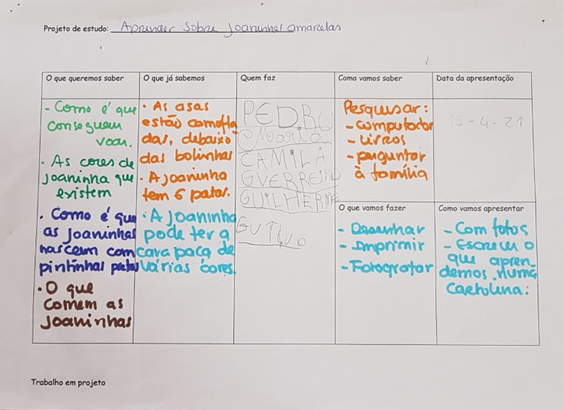 Projeto de estudo: Aprender Sobre Joaninhas amarelas
O que queremos saber
- Como é que
conseguem
voar.
• As cores de
joaninha que
existem
• Como é que
as joaninhas
nascem com
pintinhas pretas
• O que
comem as
Joaninhas
O que já sabemos
• As asas
estão camufla-
das, debaixo
das bolinhas
• A Joaninha
tem 6 patas.
• A Joaninha
pode ter a
carapaça de
várias cores.
Quem faz
PEDRO
Maria
CAMILA
GUERREIRO
GUILHERME
Como vamos saber
Pesquisar:
- computador
- Livros
- perguntar
à família
Data da apresentação
15-4-21
O que vamos fazer
- Desenhar
- Imprimir
- Fotografar
Como vamos apresentar
- Com fotos
- Escrem o
que apren-
demos numa
Cartolina.
Trabalho em projeto